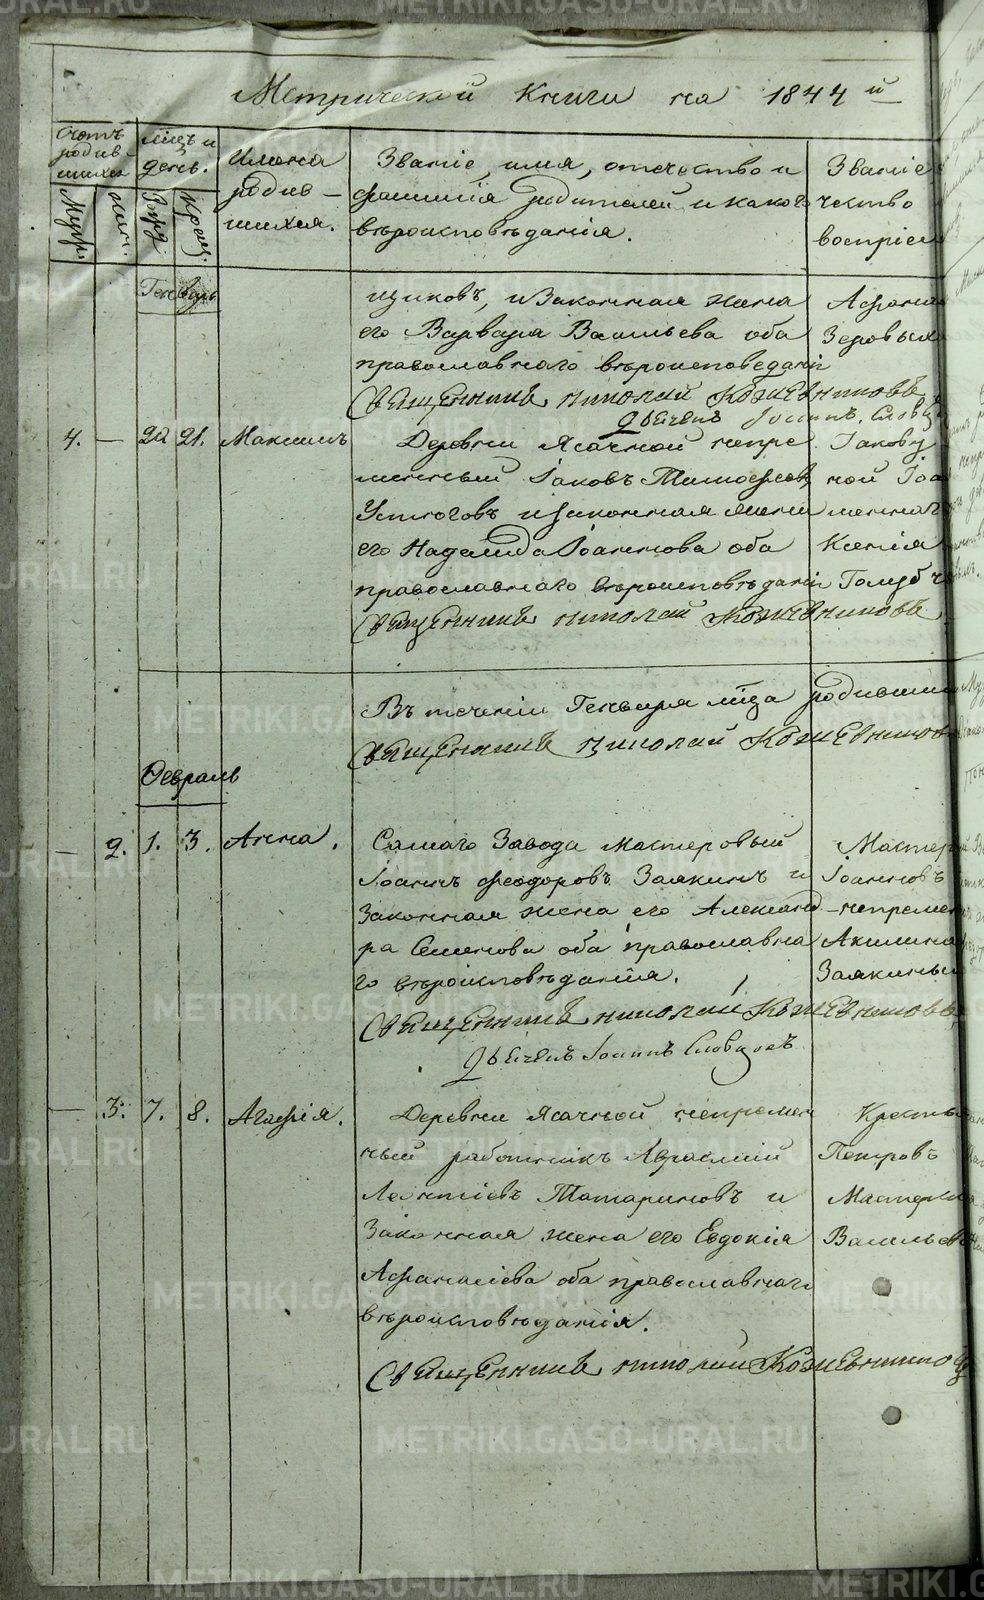 Метрической книги на 1844й
Счетъ родив-шихся
Муж.
Жен.
мцъ и день.
Рожд.
Крещ.
Имена родив-шихся.
Званіе, имя, отечество и
фамилія родителей и какого
вѣроисповѣданія.
Званіе
чество
воспріем
Генварь
щиковъ, и законная жена
его Варвара Васильева оба
православнаго вѣроисповеданія
Священникъ Николай Кожевниковъ
Дьячекъ Іоаннъ Словц
Афана
Зеровых
4. — 20 21. Максимъ
Деревни Ясачной непре
менный Іаковъ Тимофеев
Устюговъ и законная жена
его Надежда Іоаннова оба
православнаго вѣроисповѣданія
Священникъ Николай Кожевниковъ
Іакову
ной Іоа
менна
Ксенія
Голуб
Въ теченіи Генваря мца родивши
Священникъ Николай Кожевников
Февраль
— 2. 1. 3. Анна.
Самаго Завода мастеровый
Іоаннъ Феодоровъ Заякинъ и
Законная жена его Александ
ра Семенова оба православна
го вѣроисповѣданія.
Священникъ Николай Кожевниковъ
Дьячекъ Іоаннъ Словцовъ
Мастер
Іоаннов
-непремен
Акилина
Заякины
— 3. 7. 8. Агафія.
Деревни Ясачной непремен
ный работникъ Авраамій
Леонтіевъ Татариновъ и
Законная жена его Евдокія
Афанасіева оба православнаго
вѣроисповѣданія.
Священникъ Николай Кожевниковъ
Кресть
Петровъ
Мастер
Васильев
METRIKI.GASO-URAL.RU